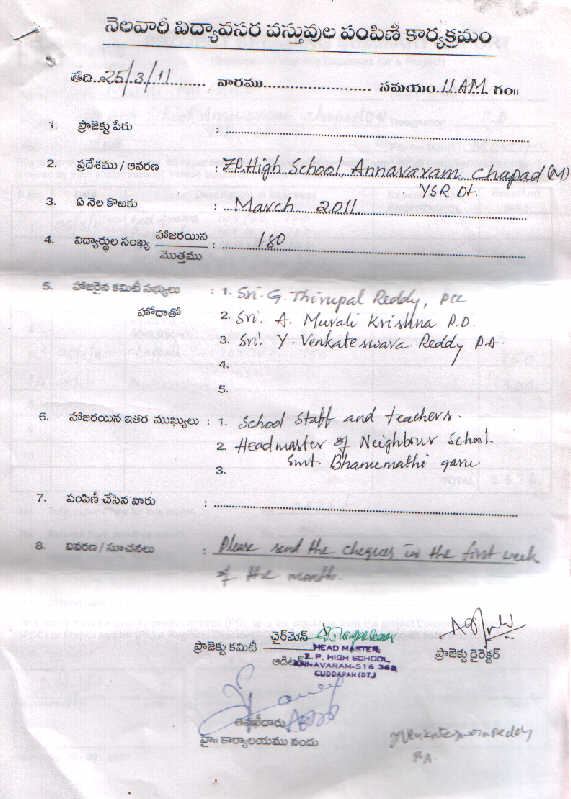 నెలవారీ విద్యావసర వస్తువుల పంపిణీ కార్యక్రమం
తేది..25/3/11........., వారము........................ సమయం.11AM గం॥
1. ప్రాజెక్టు పేరు :
2. ప్రదేశము / ఆవరణ : ZP.High School Annavaram. Chapad (M)
YSR Dt.
3. ఏ నెల కొఱకు : March 2011
4. విద్యార్థుల సంఖ్య హాజరయిన : 180
మొత్తము
5. హాజరైన కమిటీ సభ్యులు : 1. Sri. G. Thirupal Reddy, PCC
హోదాతో 2. Sri. A. Murali Krishna P.D.
3. Sri. Y. Venkateswara Reddy P.A.
4.
5.
6. హాజరయిన ఇతర ముఖ్యులు : 1. School Staff and teachers.
2. Headmaster of Neighbour School.
3. Smt. Bhanumathi garu
7. పంపిణీ చేసిన వారు :
8. వివరణ / సూచనలు : Please send the cheques in the first week
of the month.
ప్రాజెక్టు కమిటీ చైర్‌మెన్
HEAD MASTER,
Z. P. HIGH SCHOOL,
ANNAVARAM-516 362
CUDDAPAH (DT.)
ప్రాజెక్టు డైరెక్టర్
హై॥ కార్యాలయము నందు
YVenkateswaraReddy
P.A.